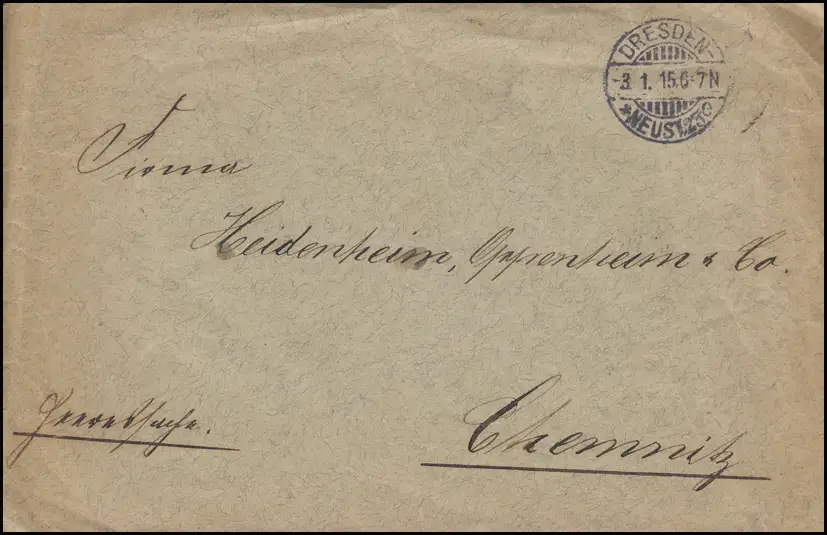 DRESDEN-
-3.1.15.6-7N
*NEUST.25g
Firma
Heidenheim, Oppenheim & Co.
Heeressache.
Chemnitz